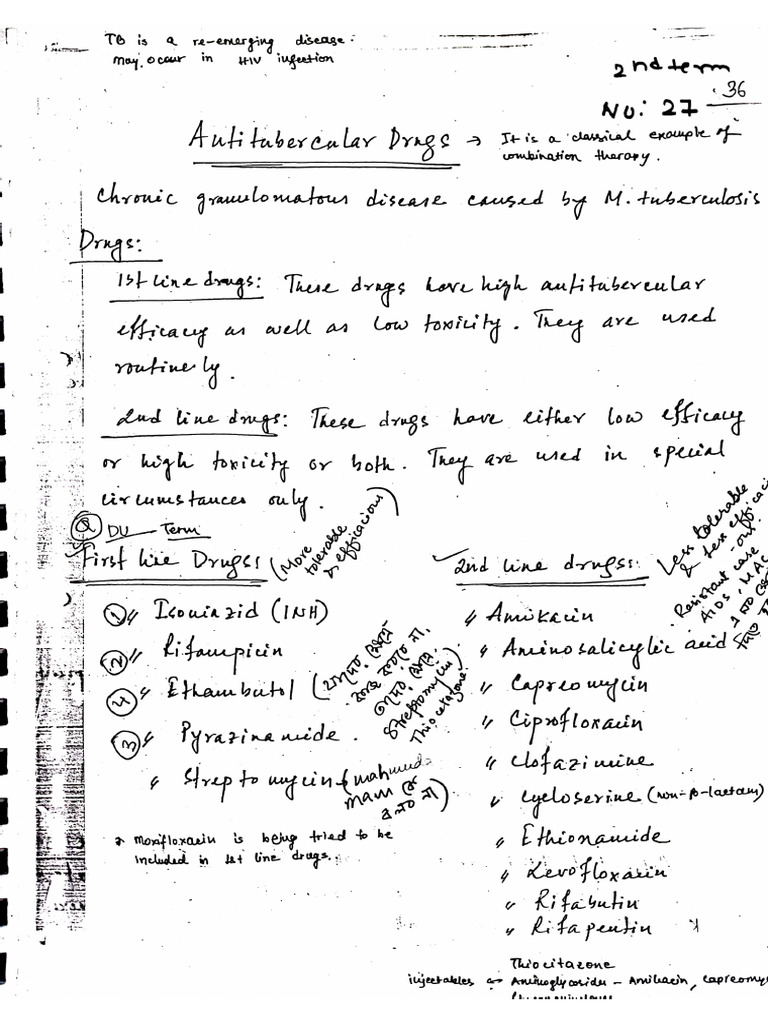 TB is a re-emerging disease.
May occur in HIV infection
2nd term
36
No: 27
Antitubercular Drugs → It is a classical example of
combination therapy.
Chronic granulomatous disease caused by M. tuberculosis
Drugs:
1st line drugs: These drugs have high antitubercular
efficacy as well as low toxicity. They are used
routinely.
2nd line drugs: These drugs have either low efficacy
or high toxicity or both. They are used in special
circumstances only.
Q DU Term
First line Drugs:
(More
tolerable
& efficacious)
1 " Isoniazid (INH)
2 " Rifampicin
4 " Ethambutol
3 " Pyrazinamide.
" Streptomycin (mahmud
mam
Streptomycin)
Thiocetazone
* Moxifloxacin is being tried to be
included in 1st line drugs.
2nd line drugs:
Less tolerable
& less
Resistant case
AIDS, MAC
" Amikacin
" Aminosalicylic acid
" Capreomycin
" Ciprofloxacin
" Clofazimine
" Cycloserine (non-β-lactam)
" Ethionamide
" Levofloxacin
" Rifabutin
" Rifapentin
Thiocitazone
injectables → Aminoglycosides - Amikacin, capreomy